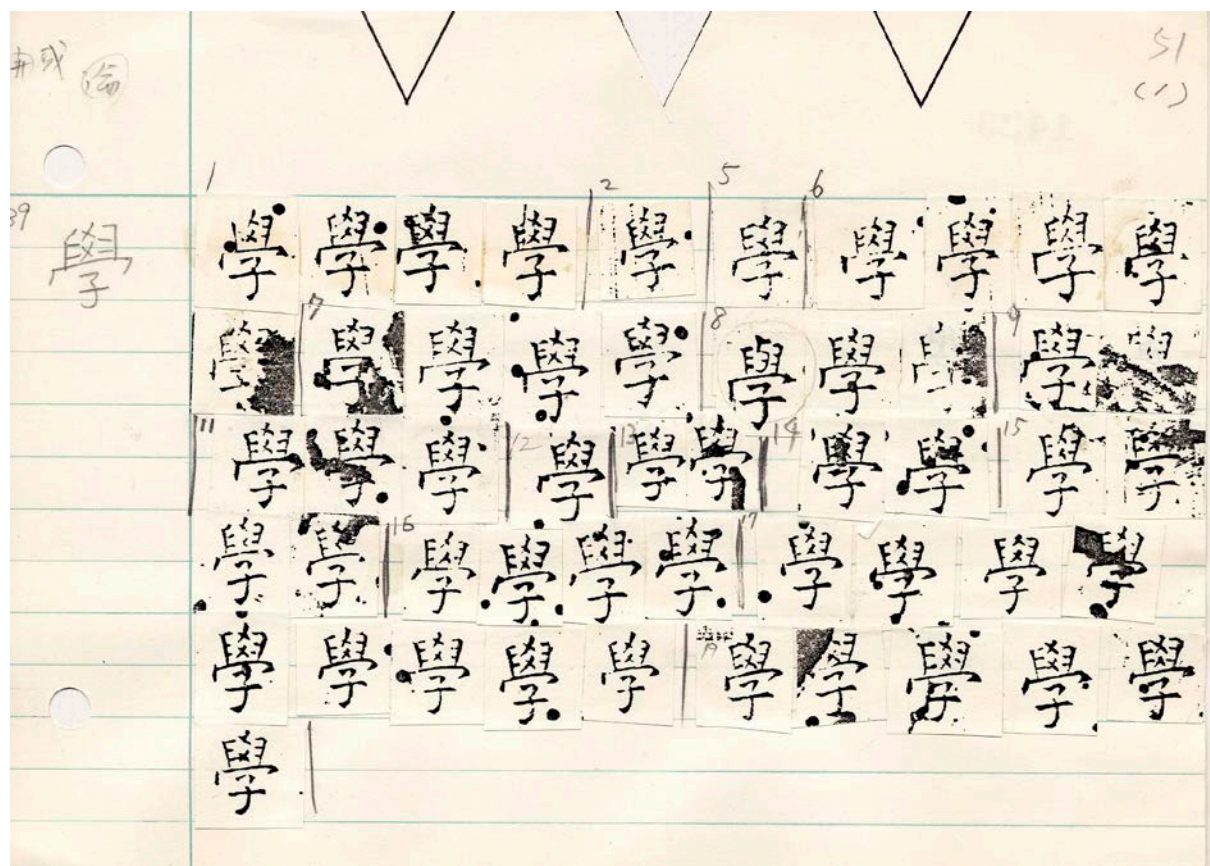 開成 論
51
(1)
39 學
1 學 學 學 學 2 學 5 學 6 學 學 學 學
學 7 學 學 學 學 8 學 學 學 9 學 學
11 學 學 學 12 學 13 學 學 14 學 學 15 學 學
學 學 16 學 學 學 學 17 學 學 學 學
學 學 學 學 學 19 學 學 學 學 學
學